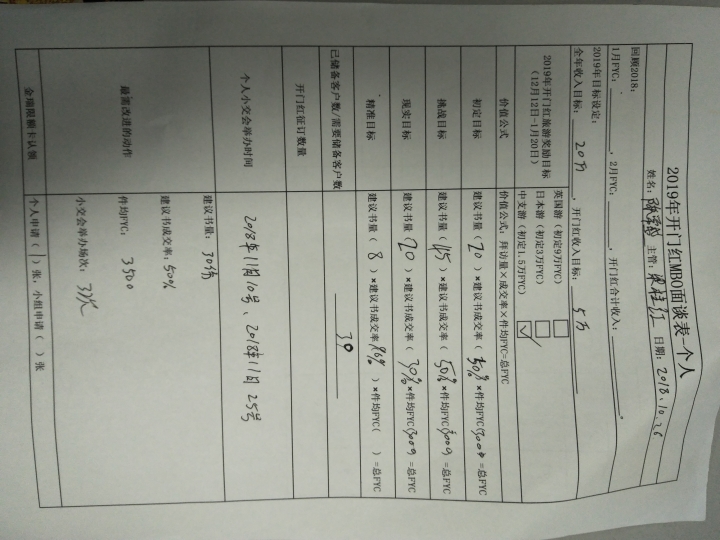 2019年开门红MBO面谈表-个人
姓名: 主管: 日期: 2018.10.26
回顾2018:
1月FYC: , 2月FYC: , 开门红合计收入: 。
2019年目标设定:
全年收入目标: 20万 , 开门红收入目标: 5万
2019年开门红旅游奖励目标
(12月12日-1月20日)
英国游 (初定9万FYC)
日本游 (初定3万FYC)
中支游 (初定1.5万FYC) ✓
价值公式 价值公式: 拜访量×成交率×件均FYC=总FYC
初定目标 建议书量 ( 20 ) ×建议书成交率 ( 50% ×件均FYC( =总FYC
挑战目标 建议书量 ( ) ×建议书成交率 ( 50% ×件均FYC( =总FYC
现实目标 建议书量 ( 20 ) ×建议书成交率 ( 30% ×件均FYC( =总FYC
精准目标 建议书量 ( 8 ) ×建议书成交率 ) ×件均FYC( ) =总FYC
已储备客户数/需要储备客户数 30
开门红征订数量
个人小交会举办时间 2018年11月10号、2018年11月25号
最需改进的动作
建议书量: 30份
建议书成交率: 50%
件均FYC: 3500
小交会举办场次: 3次
金瑞限额卡认领 个人申请 ( 1 ) 张, 小组申请 ( ) 张